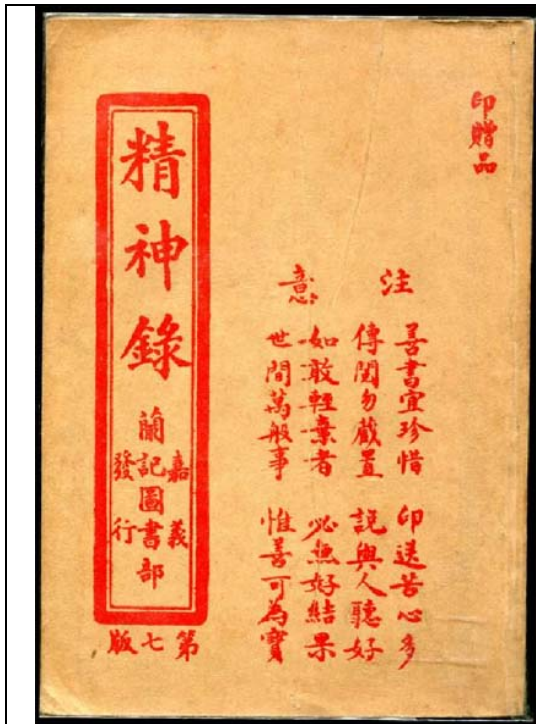 印贈品
注意
善書宜珍惜 印送苦心多
傳閱勿藏置 說與人聽好
如敢輕棄者 必無好結果
世間萬般事 惟善可為寶
精神錄
嘉義
蘭記圖書部
發行
第七版